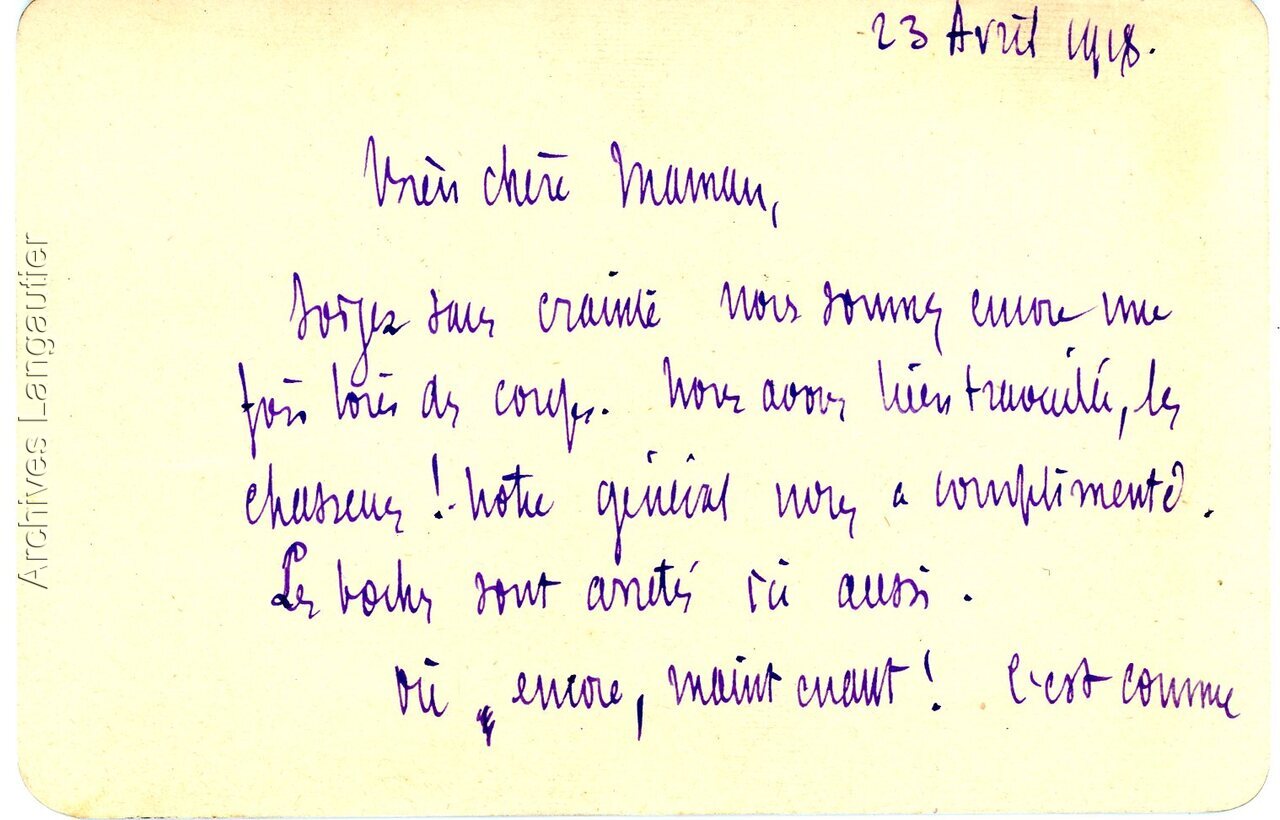 23 Avril 1918.
Bien chère Maman,
Soyez sans crainte nous sommes encore une
fois hors du coup. Nous avons bien travaillé, les
chasseurs ! Notre général nous a complimenté.
Les boches sont arretés ici aussi.
Où encore, maintenant ! C'est comme
Archives Langautier